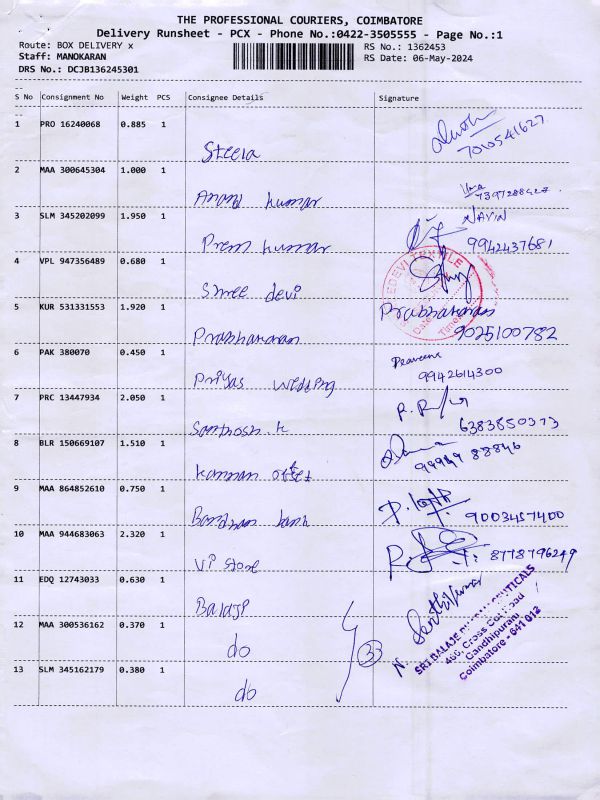 THE PROFESSIONAL COURIERS, COIMBATORE
Delivery Runsheet - PCX - Phone No.:0422-3505555 - Page No.:1
Route: BOX DELIVERY x
RS No.: 1362453
Staff: MANOKARAN
RS Date: 06-May-2024
DRS No.: DCJB136245301
S No Consignment No Weight PCS Consignee Details Signature
1 PRO 16240068 0.885 1
Steela 7010541627
2 MAA 300645304 1.000 1
Anand kumar
3 SLM 345202099 1.950 1 NAVIN
Prem kumar 9942437681
4 VPL 947356489 0.680 1
Shree devi
5 KUR 531331553 1.920 1 Prabhakaran
Prabhakaran 9025100782
6 PAK 380070 0.450 1 Praveena
Priyas wedding 9942614300
7 PRC 13447934 2.050 1
Santhosh.k 6383850373
8 BLR 150669107 1.510 1
Kannan offset 99949 88846
9 MAA 864852610 0.750 1
Bandhan bank 9003457400
10 MAA 944683063 2.320 1
VP Store 8778796249
11 EDQ 12743033 0.630 1
Balaji
12 MAA 300536162 0.370 1
do 33
13 SLM 345162179 0.380 1
do
N. Senthilkumar
SRI BALAJE
466, Cross Cut Road
Gandhipuram
Coimbatore - 641 012